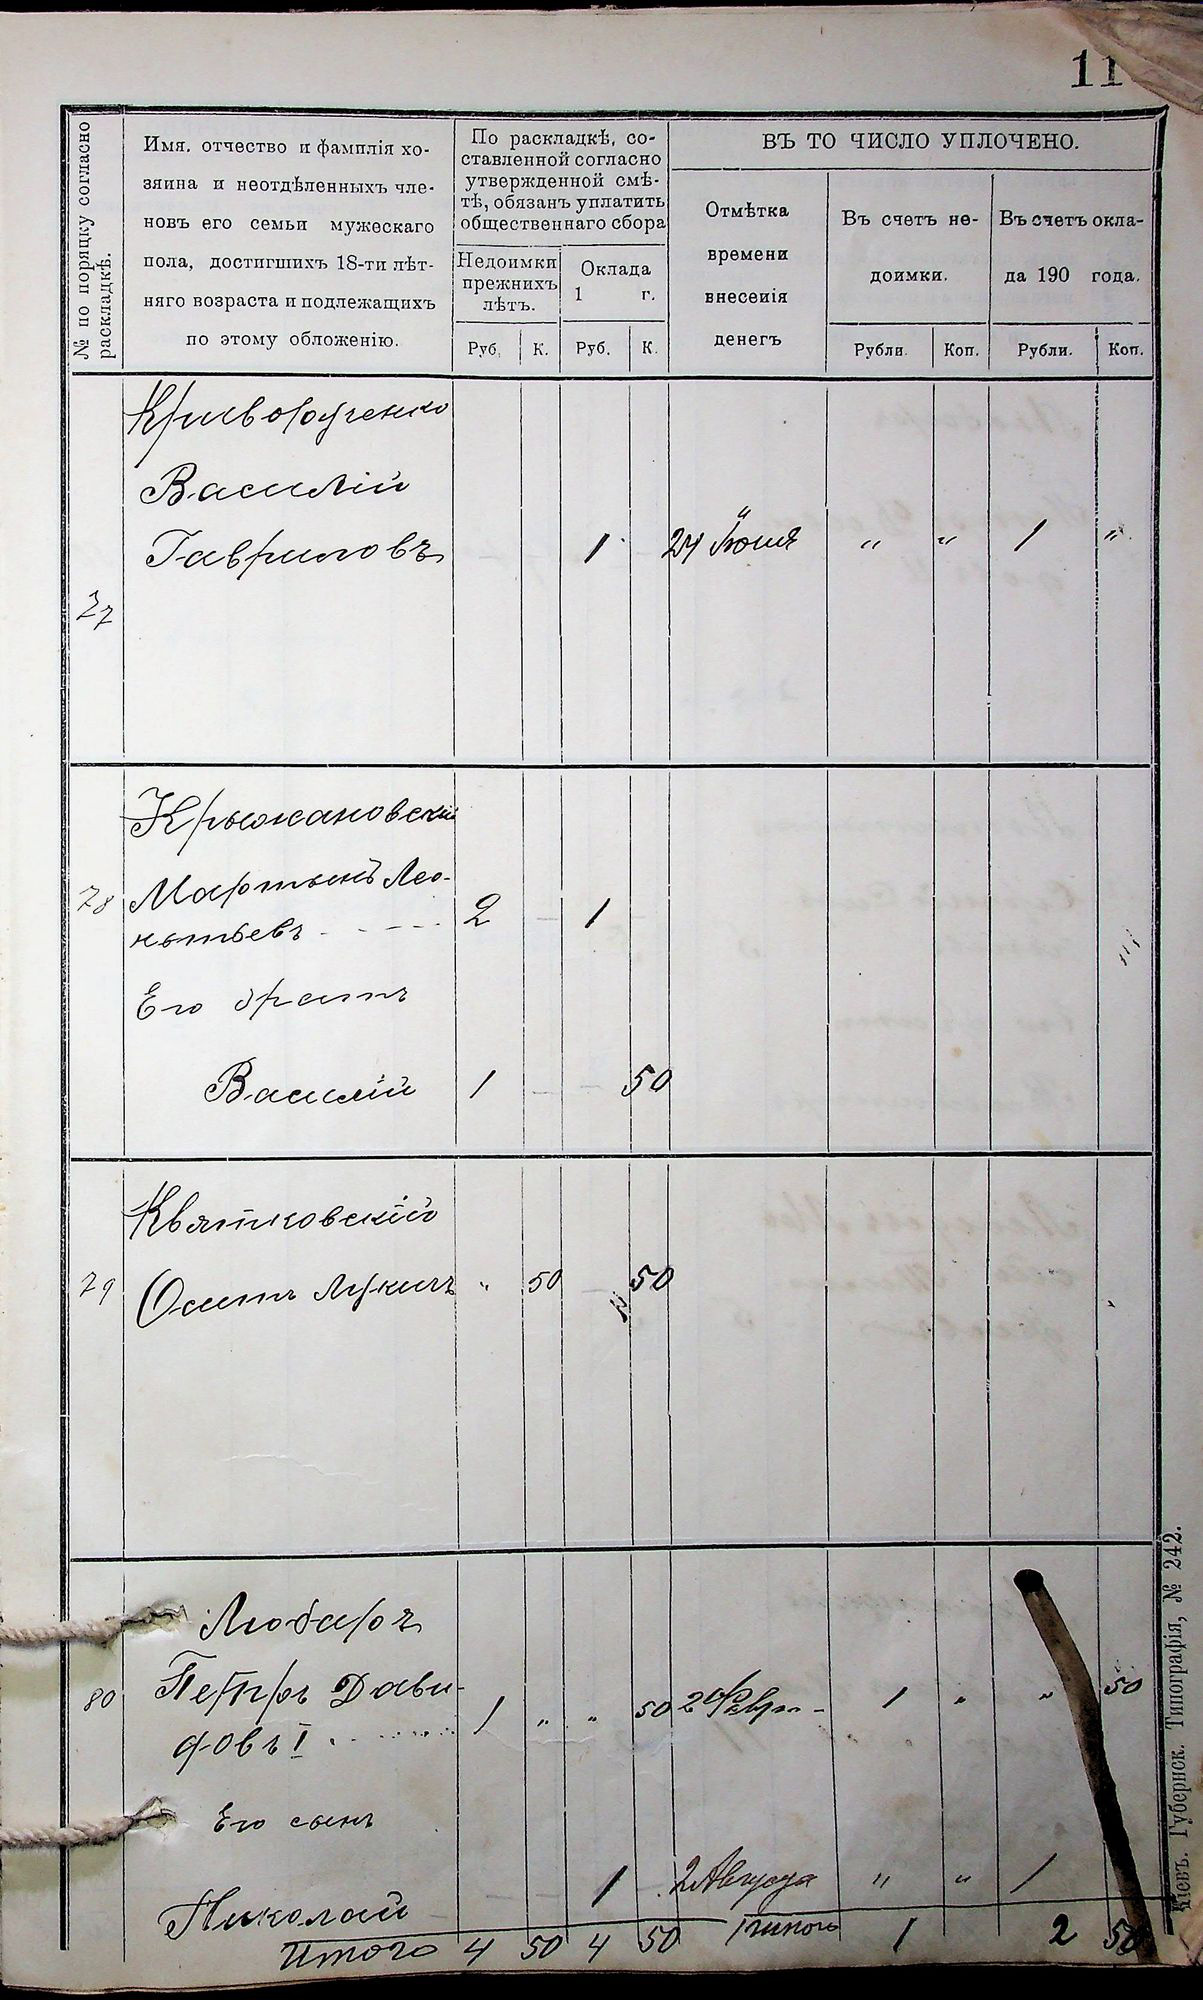 11
№ по поряцку согласно раскладкѣ.
Имя, отчество и фамилія хо-
зяина и неотдѣленныхъ чле-
новъ его семьи мужескаго
пола, достигшихъ 18-ти лѣт-
няго возраста и подлежащихъ
по этому обложенію.
По раскладкѣ, со-
ставленной согласно
утвержденной смѣ-
тѣ, обязанъ уплатить
общественнаго сбора
Недоимки
прежнихъ
лѣтъ.
Оклада
1 г.
Руб. К. Руб. К.
ВЪ ТО ЧИСЛО УПЛОЧЕНО.
Отмѣтка
времени
внесенія
денегъ
Въ счетъ не-
доимки.
Въ счетъ окла-
да 190 года.
Рубли. Коп. Рубли. Коп.
Криворученко
Василій
Гавриловъ 1 24 Іюня " " 1 "
77
Крыжановскій
78 Мартынъ Лео-
нтьевъ 2 — 1
Его братъ
Василій 1 — — 50
Квятковскій
79 Осипъ Лукичъ " 50 — 50
Любаръ
80 Петръ Дави-
довъ I 1 " " 50 20 Февр. 1 " " 50
Его сынъ
Николай — — 1 — 2 Августа " " 1
Итого 4 50 4 50 Итого 1 2 50
Кіевъ. Губернск. Типографія, № 242.